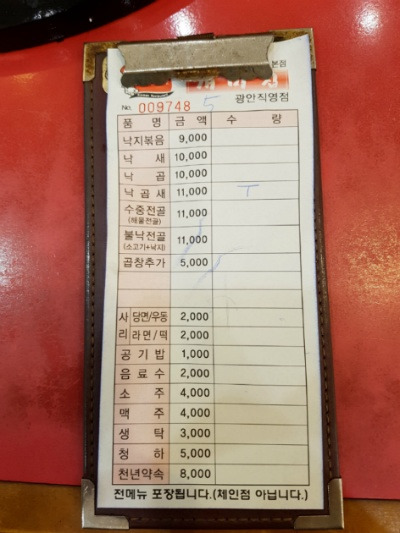 본점
No. 009748 5
광안직영점
품 명 금 액 수 량
낙지볶음 9,000
낙 새 10,000
낙 곱 10,000
낙 곱 새 11,000 T
수중전골 11,000
(해물전골)
불낙전골 11,000
(소고기+낙지)
곱창추가 5,000
사리 당면/우동 2,000
라면/떡 2,000
공 기 밥 1,000
음 료 수 2,000
소 주 4,000
맥 주 4,000
생 탁 3,000
청 하 5,000
천년약속 8,000
전메뉴 포장됩니다.(체인점 아닙니다.)